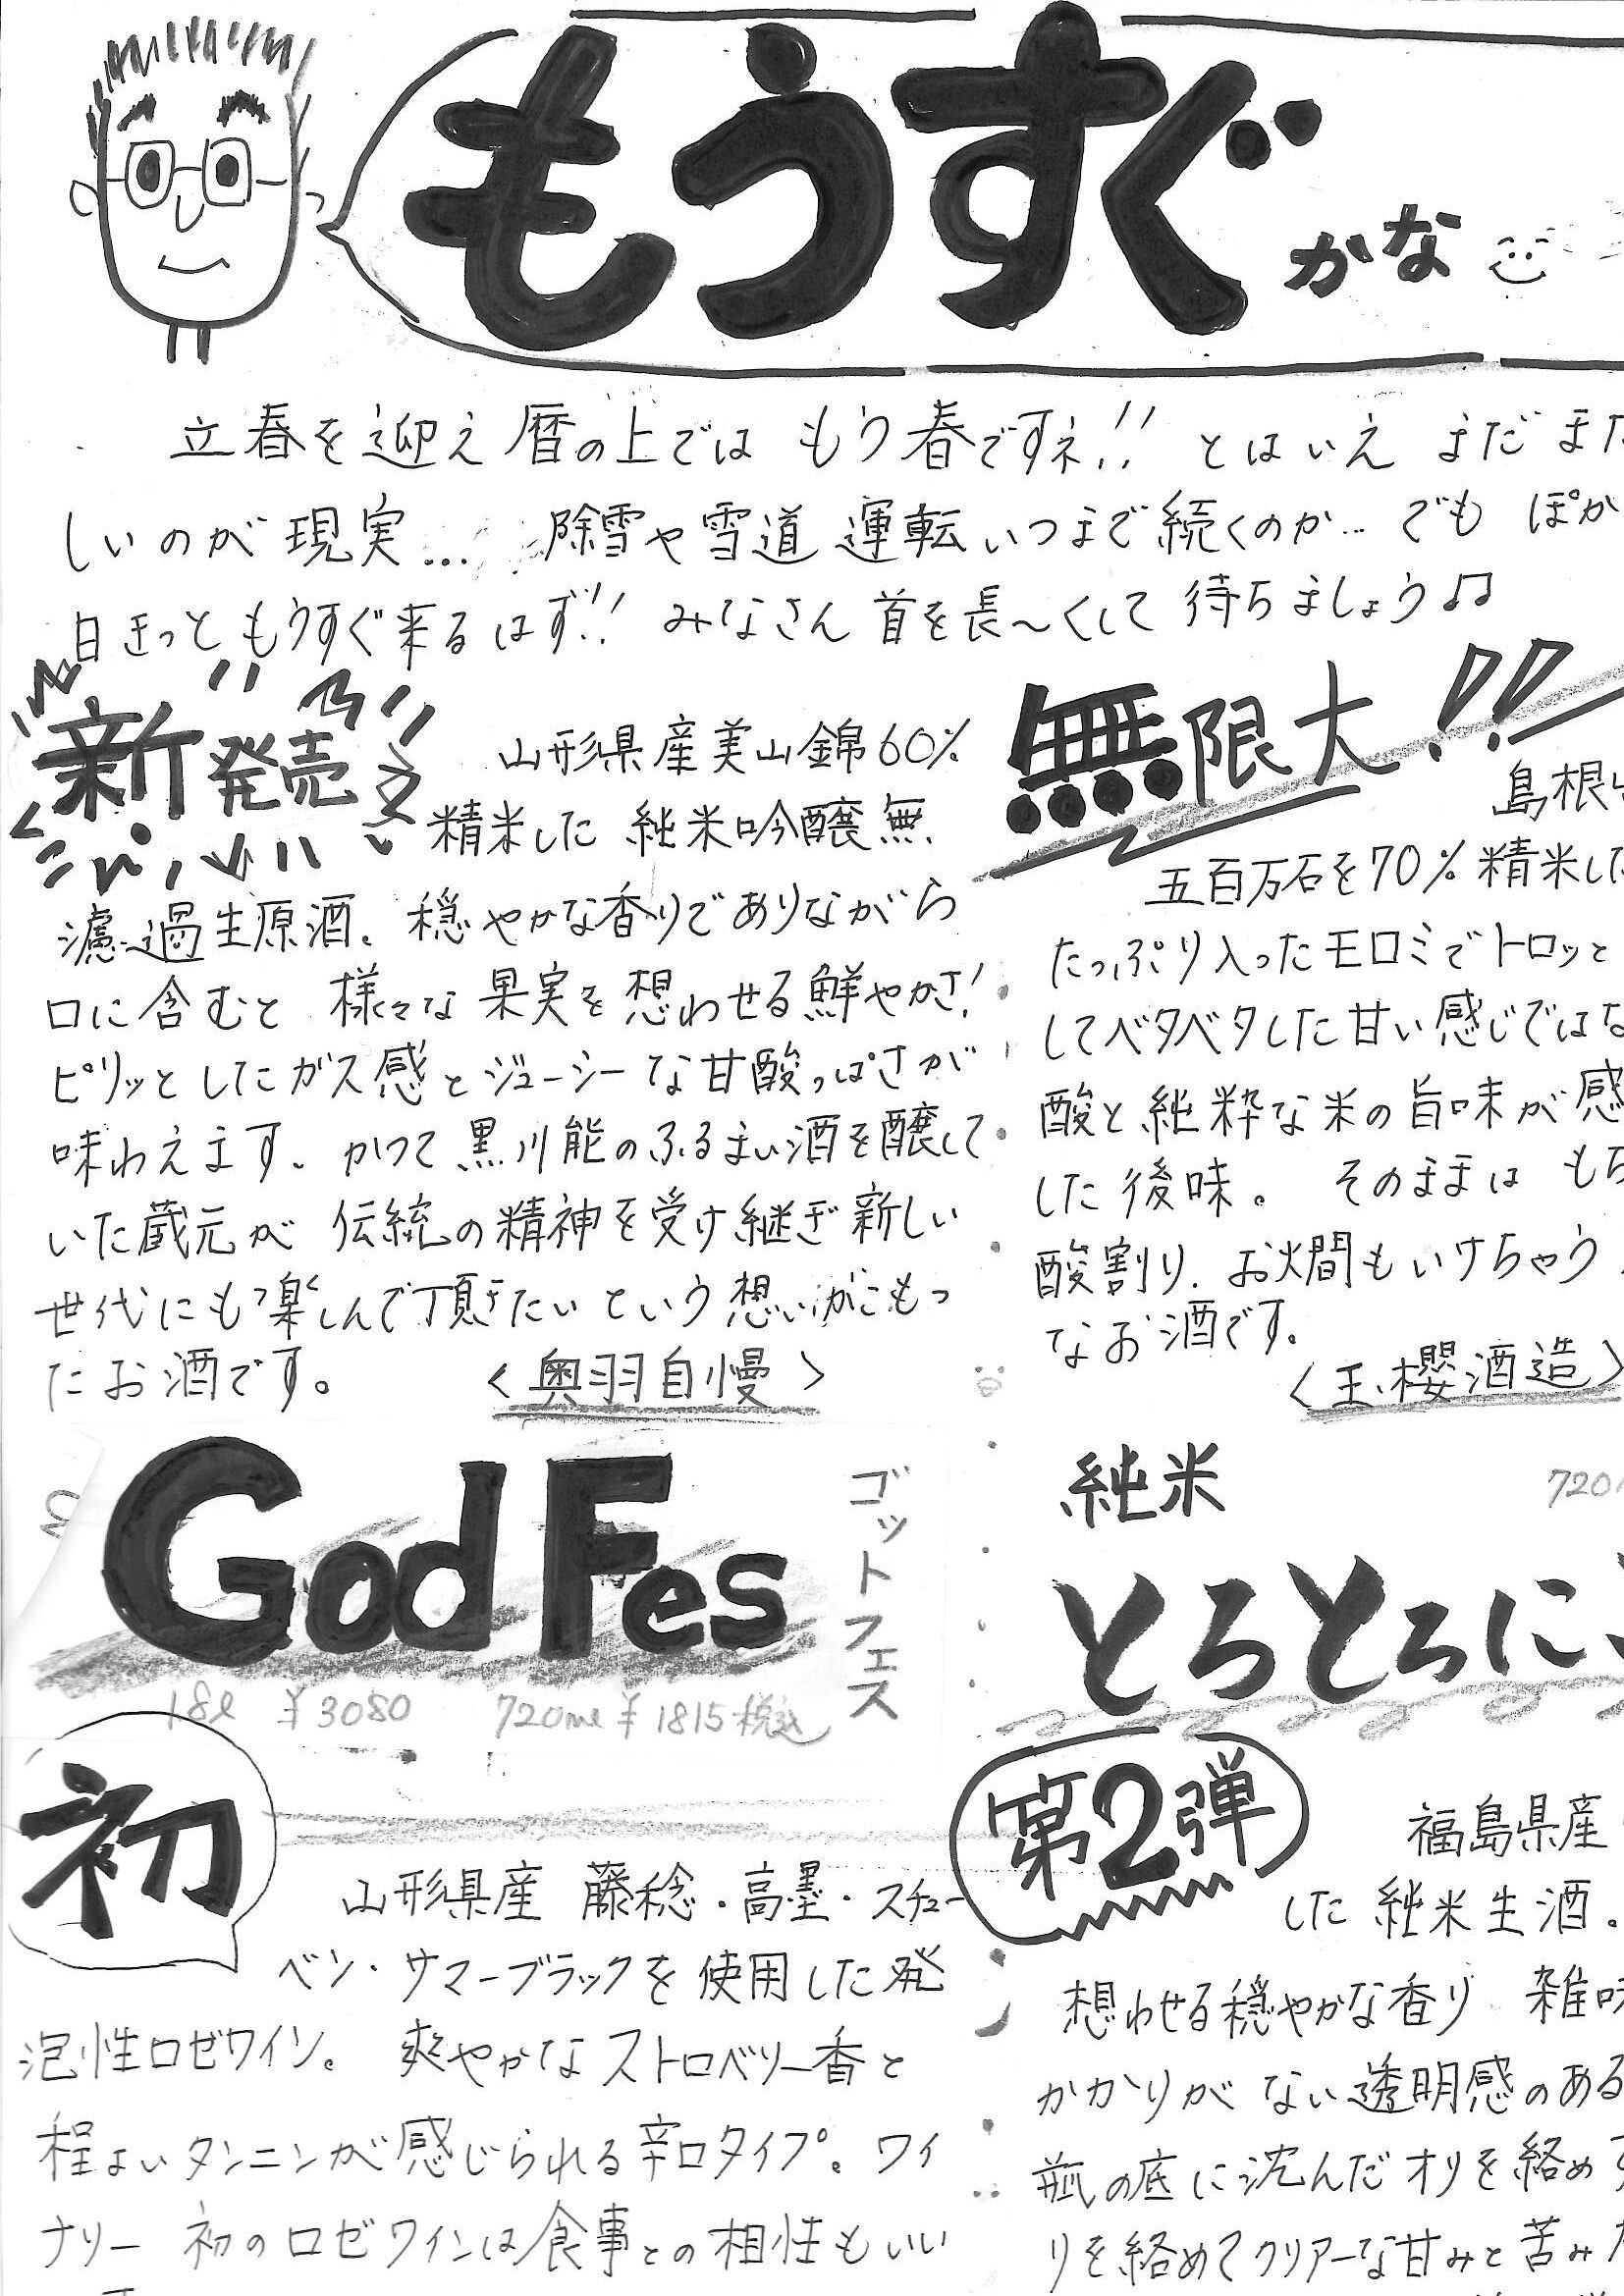 もうすぐ
かな
立春を迎え暦の上では もう春ですネ!! とはいえ まだまだ
しいのが現実... 除雪や雪道運転いつまで続くのか… でも ぽか
日きっともうすぐ来るはず!! みなさん首を長〜くして待ちましょう♫
新発売
山形県産美山錦60%
精米した 純米吟醸無
濾過生原酒。穏やかな香りでありながら
口に含むと 様々な果実を想わせる鮮やかさ!
ピリッとしたガス感とジューシーな甘酸っぱさが
味わえます。かつて黒川能のふるまい酒を醸して
いた蔵元が 伝統の精神を受け継ぎ新しい
世代にも楽しんで頂きたいという想いがこもっ
たお酒です。 <奥羽自慢>
God Fes
ゴットフェス
1.8l ¥3080 720ml ¥1815税込
初
山形県産 藤稔・高墨・スチュー
ベン・サマーブラックを使用した発
泡性ロゼワイン。 爽やかなストロベリー香と
程よいタンニンが感じられる辛口タイプ。ワイ
ナリー 初のロゼワインは食事との相性もいい
無限大!!
島根
五百万石を70%精米した
たっぷり入ったモロミでトロッと
してベタベタした甘い感じではな
酸と純粋な米の旨味が感
した後味。 そのままは もち
酸割り、お燗もいけちゃう
なお酒です。
<玉櫻酒造>
純米
720
とろとろに
第2弾
福島県産
した純米生酒。
想わせる穏やかな香り 雑味
かかりがない透明感のある
瓶の底に沈んだオリを絡めず
りを絡めてクリアーな甘みと苦みが